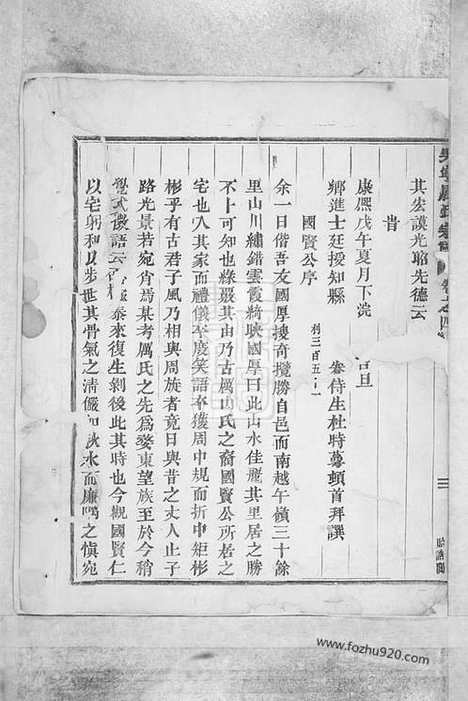 其宏謨光昭先德云
旹
康熙戊午夏月下浣 吉旦
鄉進士廷授知縣 眷侍生杜時 頓首拜譔
國賢公序 利三百五十一
余一日偕吾友國厚搜奇攬勝自邑而南越午嶺三十餘
里山川繡錯雲霞綺映國厚曰此山水佳麗其里居之勝
不卜可知也緣叢其由乃古厲山氏之裔國賢公所居之
宅也入其家而禮儀卒度笑語卒獲周中規而折中矩彬
彬乎有古君子風乃相與周旋者竟日與昔之丈人止子
路光景若宛肖焉其考厲氏之先為婺東望族至於今稍
覺式微語云 極 泰來復生剝後此其時也今觀國賢仁
以宅躬和以步世其骨氣之清儼如秋水而廉隅之慎宛
www.fozhu920.com